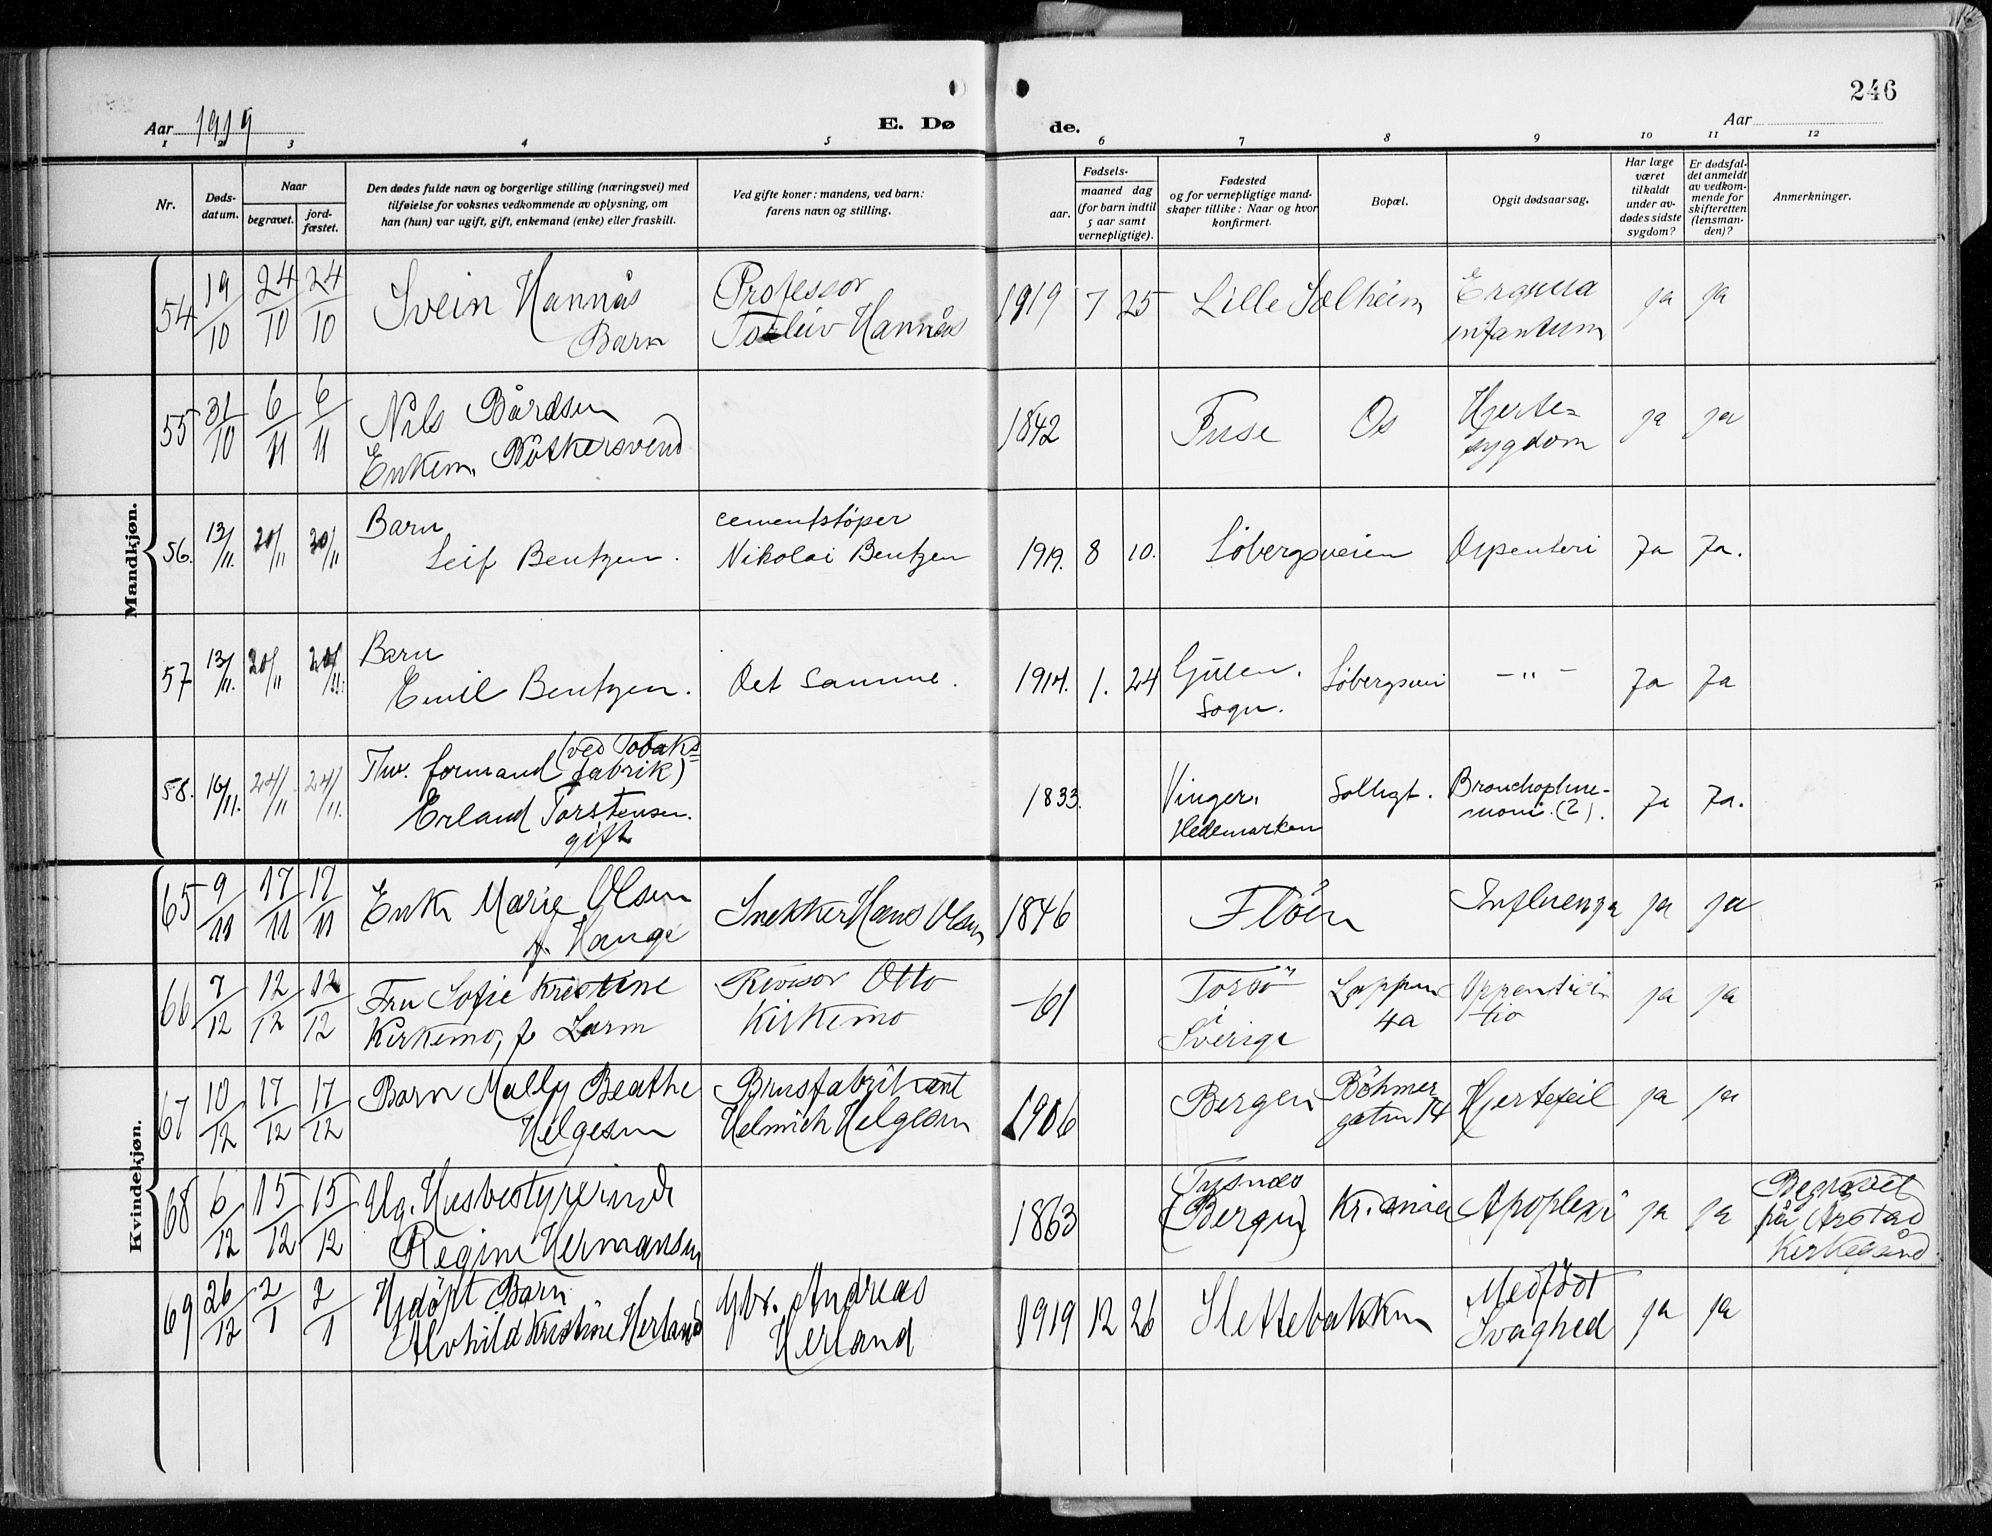 246
Aar 1919
E. Dø
de.
Aar
1 2 3 4 5 6 7 8 9 10 11 12
Nr.
Døds-
datum.
Naar
begravet.
jord-
fæstet.
Den dødes fulde navn og borgerlige stilling (næringsvei) med
tilføielse for voksnes vedkommende av oplysning, om
han (hun) var ugift, gift, enkemand (enke) eller fraskilt.
Ved gifte koner: mandens, ved barn:
farens navn og stilling.
Fødsels-
aar.
maaned dag
(for barn indtil
5 aar samt
vernepligtige).
Fødested
og for vernepligtige mand-
skaper tillike: Naar og hvor
konfirmert.
Bopæl.
Opgit dødsaarsag.
Har læge
været
tilkaldt
under av-
dødes sidste
sygdom?
Er dødsfal-
det anmeldt
av vedkom-
mende for
skifteretten
(lensman-
den)?
Anmerkninger.
Mandkjøn.
54 19/10 24/10 24/10 Svein Hannås
Barn
Professor
Torleiv Hannås
1919 7 25 Lille Solheim
infantum
ja ja
55 31/10 6/11 6/11 Nils Bårdsen
Enkem. Bötkersvend
1842 Fuse Os Hjerte-
sygdom
ja ja
56. 13/11. 20/11 20/11 Barn
Leif Bentzen.
cementstøper
Nikolai Bentzen
1919. 8 10. Løbergsveien Dysenteri Ja Ja.
57 13/11. 20/11 20/11. Barn
Emil Bentzen.
Det samme.
1914. 1. 24 Gulen.
Sogn.
Løbergsvei - " - Ja Ja
58. 16/11. 24/11 24/11. Thv. formand (ved Tobaks=
fabrik)
Erland Torstensen.
gift
1833. Vinger.
Hedemarken
Solhgt. Bronchopneu-
moni. (?).
Ja Ja.
Kvindekjøn.
65 9/11 17/11 17/11 Enke Marie Olsen
f. Hauge
Snekker Hans Olsen
1846 Flöen Influenza ja ja
66 7/12 12/12 12/12 Fru Sofie Kristine
Kirkemo, f. Lorm
Revisor Otto
Kirkemo
-61 Torsö
i
Sverige
4a
ja ja
67 10/12 17/12 17/12 Barn Mally Beathe
Helgesen
Brusfabrikant
Helmich Helgesen
1906 Bergen Böhmer
gaten 14
Hjertefeil ja ja
68 6/12 15/12 15/12 Ug. Husbestyrerinde
Regine Hermansen
1863 Tysnes
(Bergen)
Kr.ania Apoplexi ja ja Begravet
på Årstad
Kirkegård
69 26/12 2/1 2/1 Hjdöpt Barn
Alvhild Kristine Herland
Gbr. Andreas
Herland
1919 12 26 Slettebakken Medfödt
Svaghed
ja ja